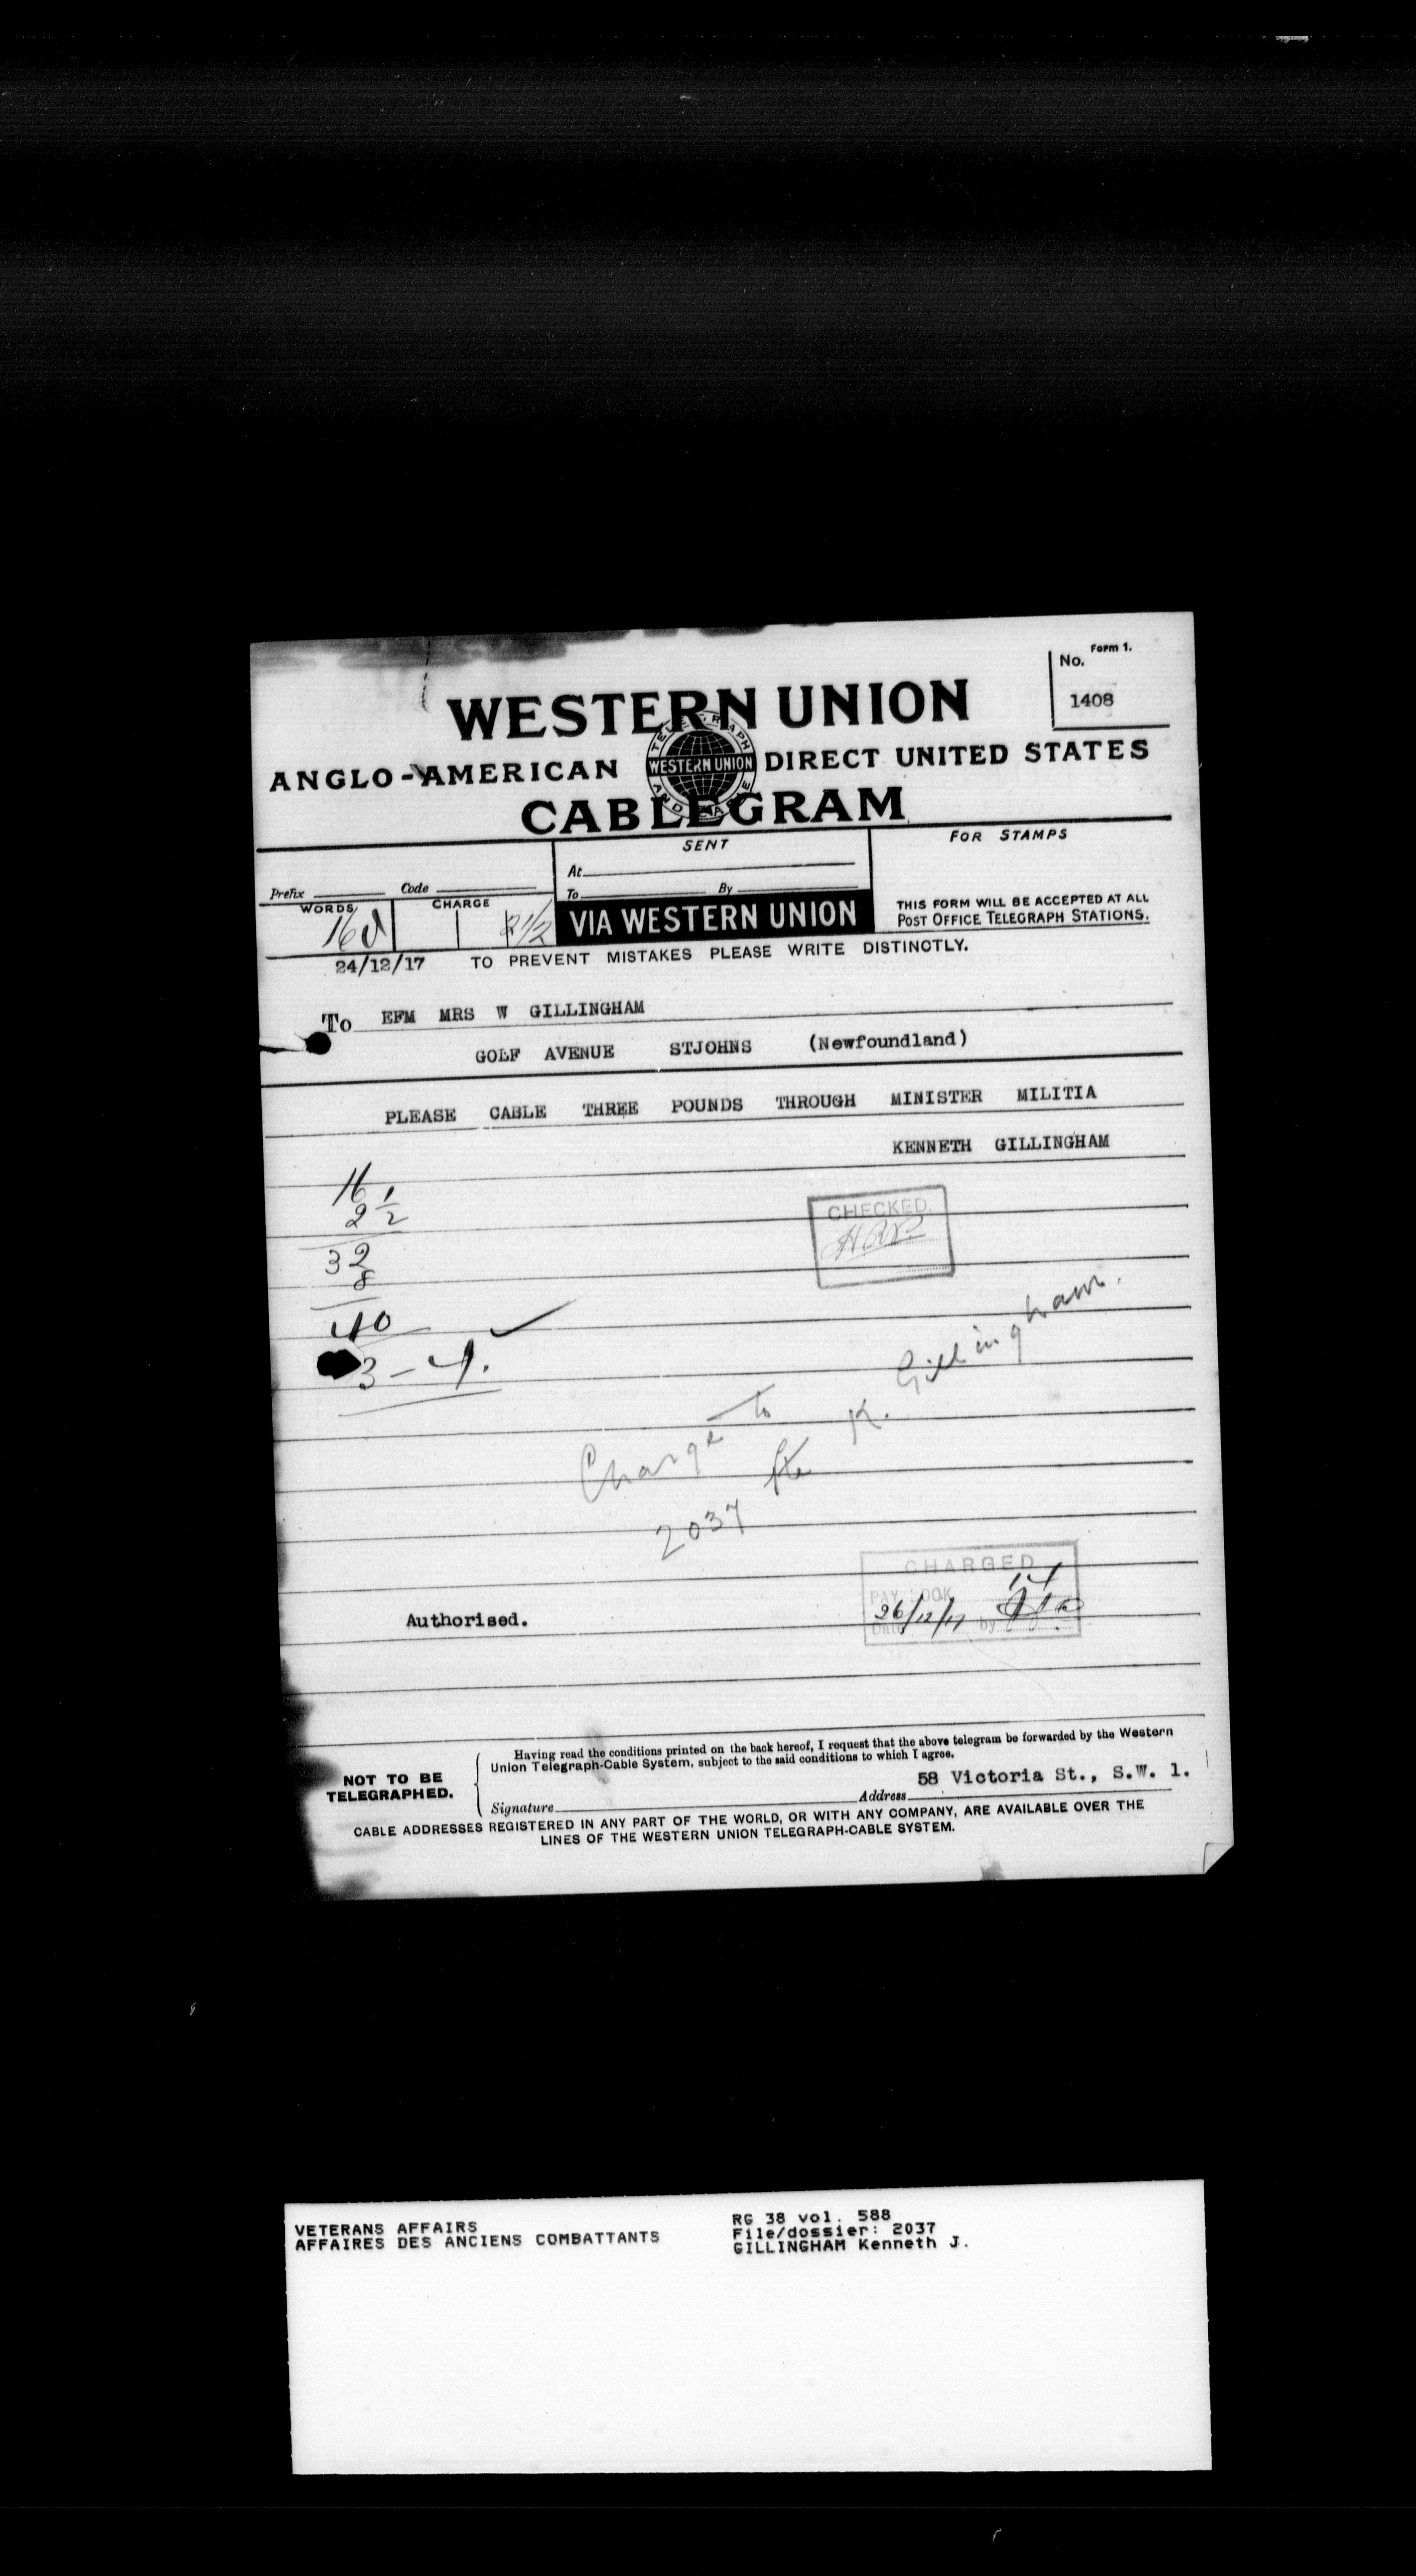 Form 1.
No.
1408
WESTERN UNION
ANGLO-AMERICAN DIRECT UNITED STATES
TELEGRAPH AND CABLE
WESTERN UNION
CABLEGRAM
SENT
FOR STAMPS
At
Prefix Code
To By
WORDS CHARGE
16 2½
VIA WESTERN UNION
THIS FORM WILL BE ACCEPTED AT ALL
POST OFFICE TELEGRAPH STATIONS.
24/12/17 TO PREVENT MISTAKES PLEASE WRITE DISTINCTLY.
To EFM MRS W GILLINGHAM
GOLF AVENUE STJOHNS (Newfoundland)
PLEASE CABLE THREE POUNDS THROUGH MINISTER MILITIA
KENNETH GILLINGHAM
16
2½
32
8
40
3-4.
CHECKED.
Charge to
Pte K. Gillingham.
2037
CHARGED
PAY BOOK
Date 26/12/17 by
Authorised.
Having read the conditions printed on the back hereof, I request that the above telegram be forwarded by the Western
Union Telegraph-Cable System, subject to the said conditions to which I agree.
NOT TO BE
TELEGRAPHED.
58 Victoria St., S.W. 1.
Signature Address
CABLE ADDRESSES REGISTERED IN ANY PART OF THE WORLD, OR WITH ANY COMPANY, ARE AVAILABLE OVER THE
LINES OF THE WESTERN UNION TELEGRAPH-CABLE SYSTEM.
VETERANS AFFAIRS
AFFAIRES DES ANCIENS COMBATTANTS
RG 38 vol. 588
File/dossier: 2037
GILLINGHAM Kenneth J.